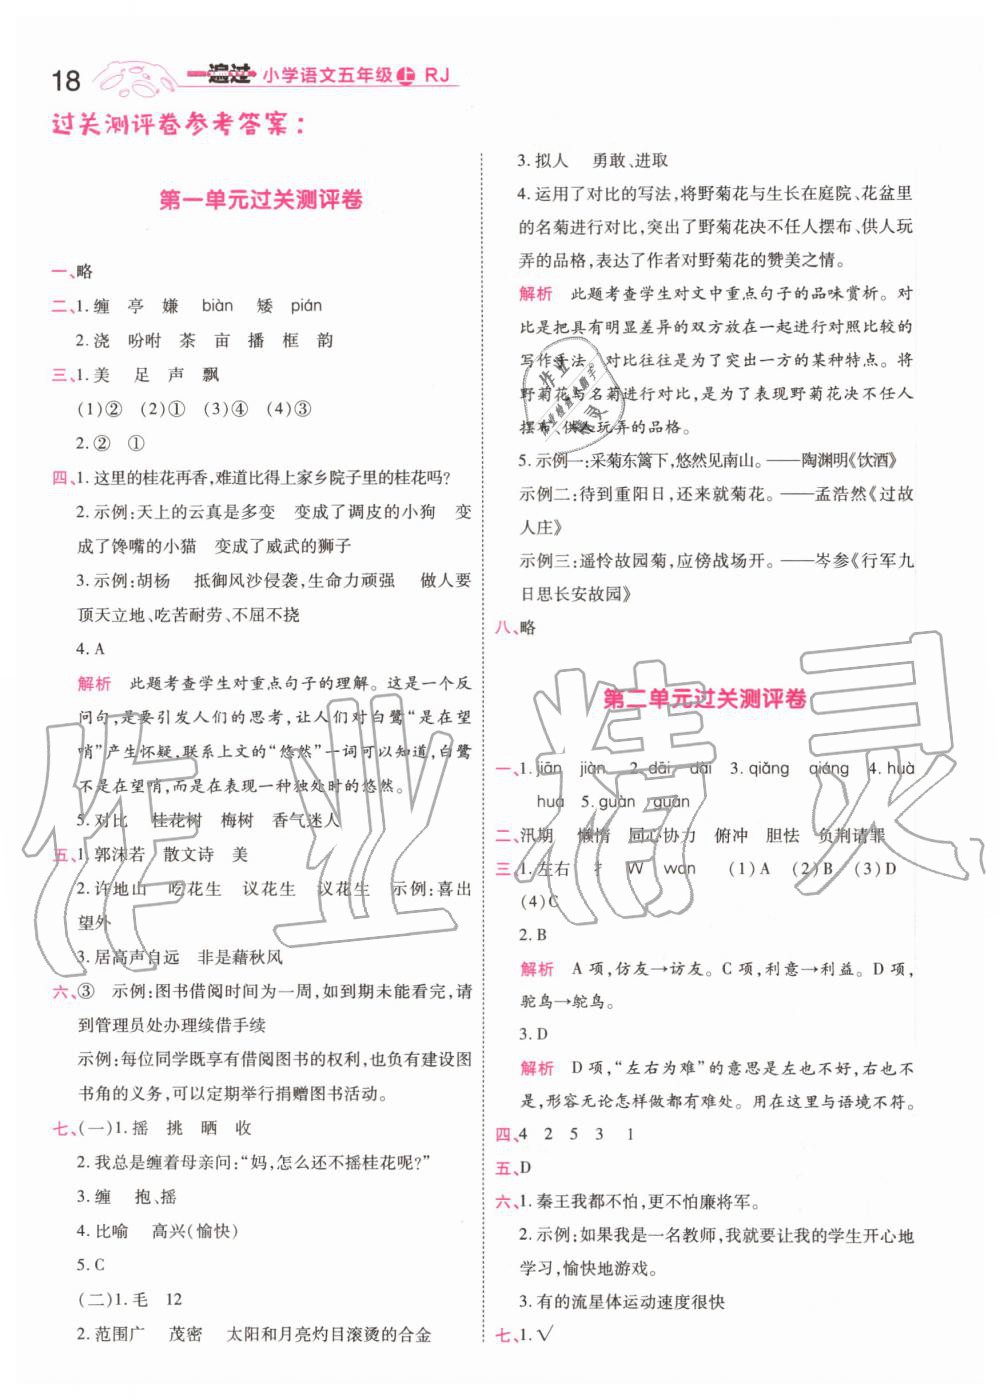 18 一遍过 小学语文五年级上 RJ
过关测评卷参考答案：
第一单元过关测评卷
一、略
二、1. 缠 亭 嫌 biàn 矮 pián
2. 浇 吩咐 茶 亩 播 框 韵
三、1. 美 足 声 飘
(1)② (2)① (3)④ (4)③
2. ② ①
四、1. 这里的桂花再香,难道比得上家乡院子里的桂花吗?
2. 示例:天上的云真是多变 变成了调皮的小狗 变
成了馋嘴的小猫 变成了威武的狮子
3. 示例:胡杨 抵御风沙侵袭,生命力顽强 做人要
顶天立地、吃苦耐劳、不屈不挠
4. A
解析 此题考查学生对重点句子的理解。这是一个反
问句,是要引发人们的思考,让人们对白鹭“是在望
哨”产生怀疑,联系上文的“悠然”一词可以知道,白鹭
不是在望哨,而是在表现一种独处时的悠然。
5. 对比 桂花树 梅树 香气迷人
五、1. 郭沫若 散文诗 美
2. 许地山 吃花生 议花生 议花生 示例:喜出
望外
3. 居高声自远 非是藉秋风
六、③ 示例:图书借阅时间为一周,如到期未能看完,请
到管理员处办理续借手续
示例:每位同学既享有借阅图书的权利,也负有建设图
书角的义务,可以定期举行捐赠图书活动。
七、(一)1. 摇 挑 晒 收
2. 我总是缠着母亲问:“妈,怎么还不摇桂花呢?”
3. 缠 抱、摇
4. 比喻 高兴(愉快)
5. C
(二)1. 毛 12
2. 范围广 茂密 太阳和月亮灼目滚烫的合金
3. 拟人 勇敢、进取
4. 运用了对比的写法,将野菊花与生长在庭院、花盆里
的名菊进行对比,突出了野菊花决不任人摆布、供人玩
弄的品格,表达了作者对野菊花的赞美之情。
解析 此题考查学生对文中重点句子的品味赏析。对
比是把具有明显差异的双方放在一起进行对照比较的
写作手法。对比往往是为了突出一方的某种特点。将
野菊花与名菊进行对比,是为了表现野菊花决不任人
摆布、供人玩弄的品格。
5. 示例一:采菊东篱下,悠然见南山。——陶渊明《饮酒》
示例二:待到重阳日,还来就菊花。——孟浩然《过故
人庄》
示例三:遥怜故园菊,应傍战场开。——岑参《行军九
日思长安故园》
八、略
第二单元过关测评卷
一、1. jiān jiàn 2. dāi dài 3. qiǎng qiáng 4. huà
huá 5. guàn guān
二、汛期 懒惰 同心协力 俯冲 胆怯 负荆请罪
三、1. 左右 扌 W wan (1)A (2)B (3)D
(4)C
2. B
解析 A 项,仿友→访友。C 项,利意→利益。D 项,
驼鸟→鸵鸟。
3. D
解析 D 项,“左右为难”的意思是左也不好,右也不
是,形容无论怎样做都有难处。用在这里与语境不符。
四、4 2 5 3 1
五、D
六、1. 秦王我都不怕,更不怕廉将军。
2. 示例:如果我是一名教师,我要让我的学生开心地
学习,愉快地游戏。
3. 有的流星体运动速度很快
七、1. √
作业精灵